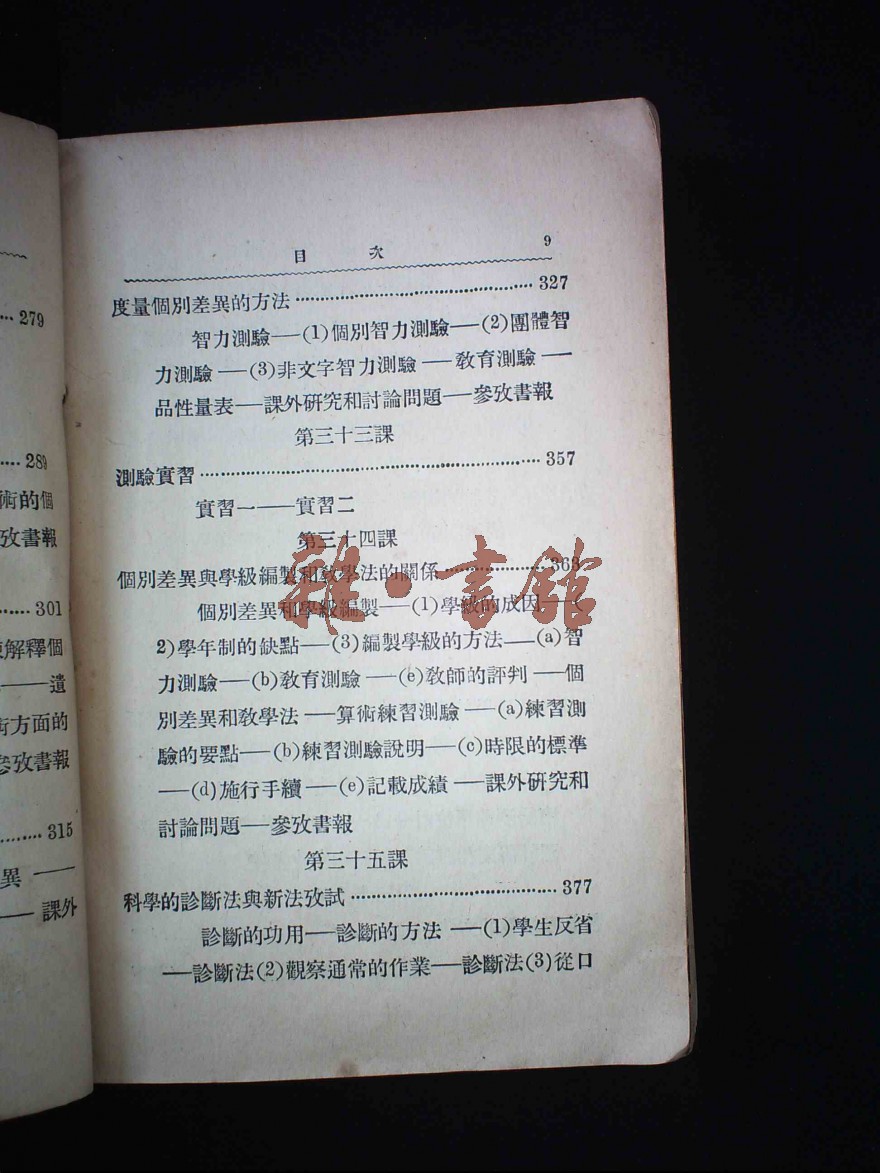 目 次 9
度量個別差異的方法 327
智力測驗—(1)個別智力測驗—(2)團體智
力測驗—(3)非文字智力測驗—敎育測驗—
品性量表—課外研究和討論問題—參攷書報
第三十三課
測驗實習 357
實習一——實習二
第三十四課
個別差異與學級編製和敎學法的關係 363
個別差異和學級編製—(1)學級的成因—(
2)學年制的缺點—(3)編製學級的方法—(a)智
力測驗—(b)敎育測驗—(e)敎師的評判—個
別差異和敎學法—算術練習測驗—(a)練習測
驗的要點—(b)練習測驗說明—(c)時限的標準
—(d)施行手續—(e)記載成績—課外研究和
討論問題—參攷書報
第三十五課
科學的診斷法與新法攷試 377
診斷的功用—診斷的方法—(1)學生反省
—診斷法(2)觀察通常的作業—診斷法(3)從口
雜·書館
279
289
術的個
攷書報
301
解釋個
——遺
術方面的
參攷書報
315
異——
—課外